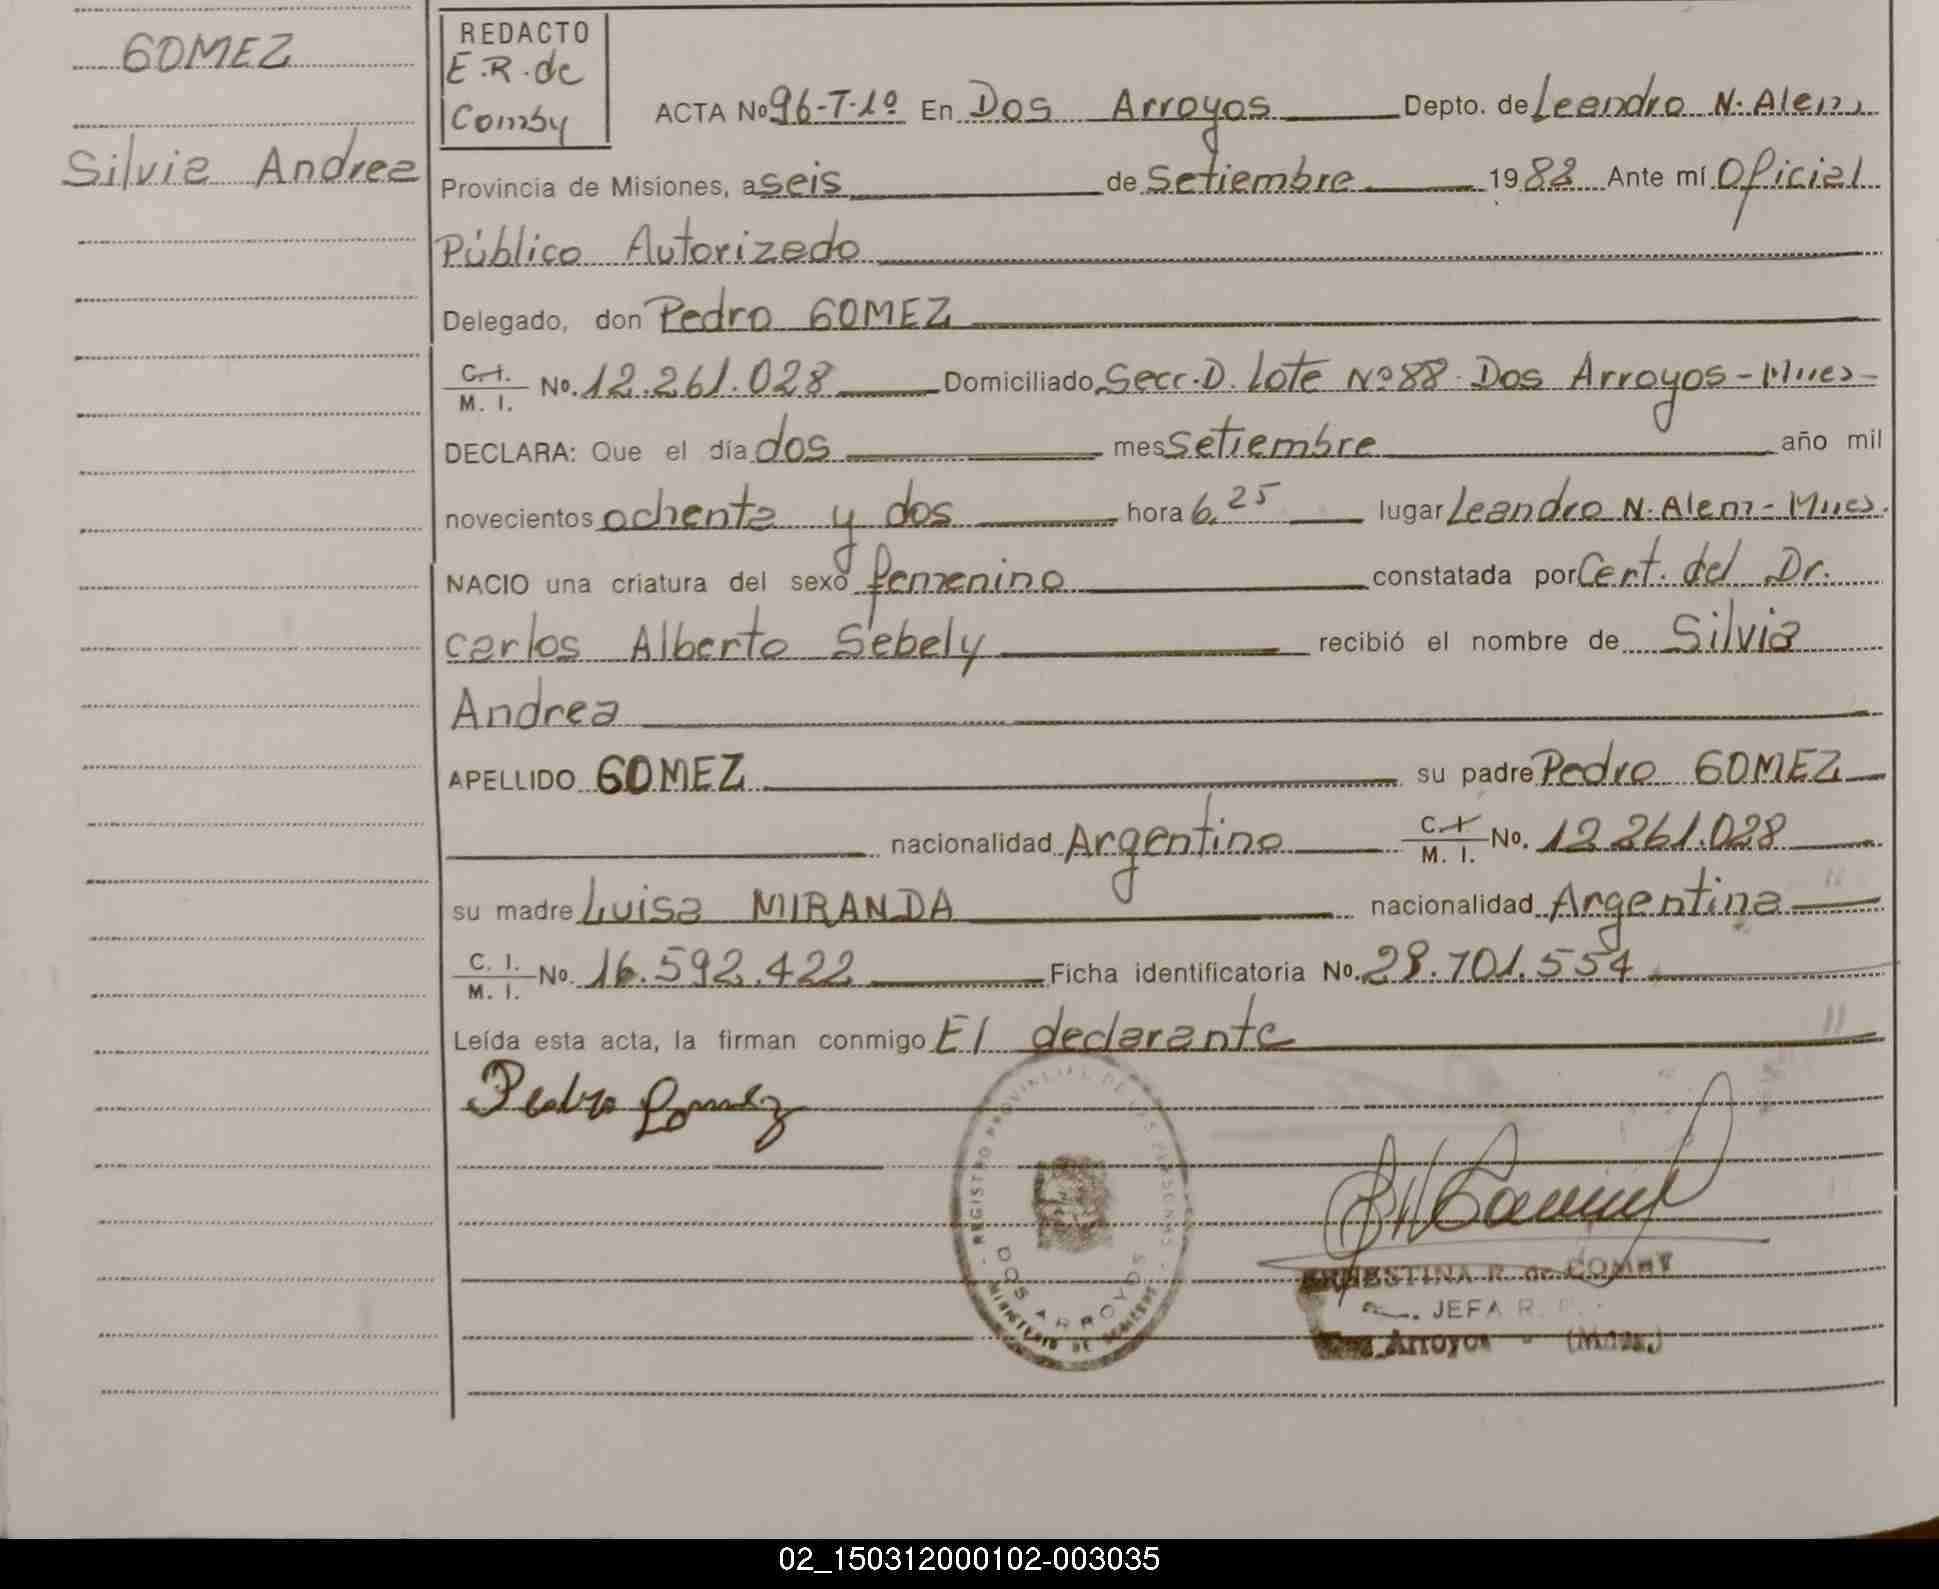 GOMEZ
Silvia Andrea
REDACTO
E.R. de
Comby
ACTA No 96-T-1º En Dos Arroyos Depto. de Leandro N. Alem
Provincia de Misiones, a seis de Setiembre 1982 Ante mí Oficial
Público Autorizado
Delegado, don Pedro GOMEZ
C. I. M. I. No. 12.261.028 Domiciliado Secc. D. Lote Nº 88 Dos Arroyos - Mnes -
DECLARA: Que el día dos mes Setiembre año mil
novecientos ochenta y dos hora 6,25 lugar Leandro N. Alem - Mnes.
NACIO una criatura del sexo femenino constatada por Cert. del Dr.
Carlos Alberto Sebely recibió el nombre de Silvia
Andrea
APELLIDO GOMEZ su padre Pedro GOMEZ
nacionalidad Argentino C. I. M. I. No. 12.261.028
su madre Luisa MIRANDA nacionalidad Argentina
C. I. M. I. No. 16.592.422 Ficha identificatoria No. 29.701.554
Leída esta acta, la firman conmigo El declarante
Pedro Gomez
REGISTRO PROVINCIAL DE LAS PERSONAS
DOS ARROYOS
MINISTERIO DE GOBIERNO
ERNESTINA R. de COMBY
JEFA R. P.
Dos Arroyos - (Mnes.)
02_150312000102-003035